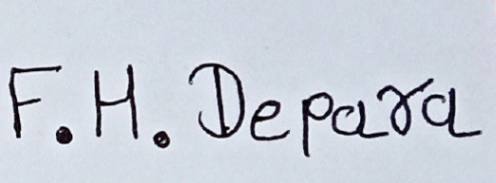 F.H. Depara